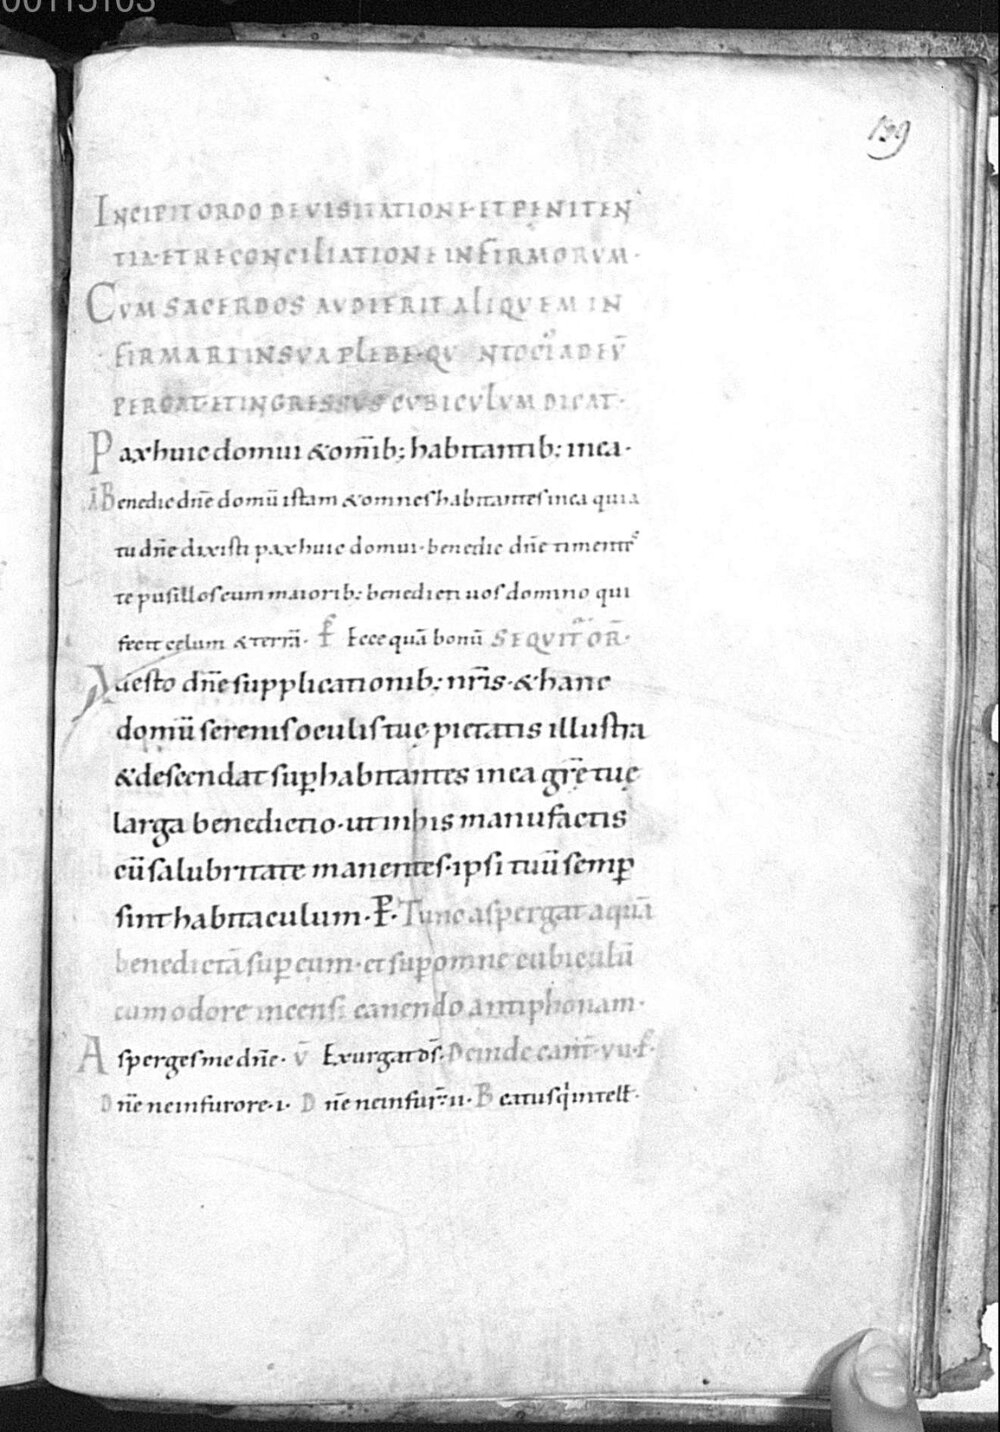 00115103
139
INCIPIT ORDO DE VISITATIONE ET PENITEN
TIA ET RECONCILIATIONE INFIRMORVM·
CVM SACERDOS AVDIERIT ALIQVEM IN
FIRMARI IN SVA PLEBE· AD EV̄
PERGAT· ET INGRESSVS CVBICVLVM DICAT·
Pax huic domui & om̄ib; habitantib; in ea·
Ā Benedic dn̄e domū istam & omnes habitantes in ea quia
tu dn̄e dixisti pax huic domui· benedic dn̄e timentes
te pusillos cum maiorib; benedicti uos domino qui
fecit celum & terrā· Ecce quā bonū SEQVIT̄ OR̄·
Adesto dn̄e supplicationib; nr̄is· & hanc
domū serenis oculis tuę pietatis illustra
& descendat sup̱ habitantes in ea gr̄ę tuę
larga benedictio· ut in his manufactis
cū salubritate manentes· ipsi tuū semp̱
sint habitaculum· P̱· Tunc aspergat aquā
benedictā sup̱ eum· et sup̱ omne cubiculū
cum odore incensi canendo antiphonam·
Asperges me dn̄e· V̄ Exurgat ds̄· Deinde can̄t· vii·
Dn̄e ne in furore· i· Dn̄e ne in fur̄· ii· Beatus q̇ intell̄·